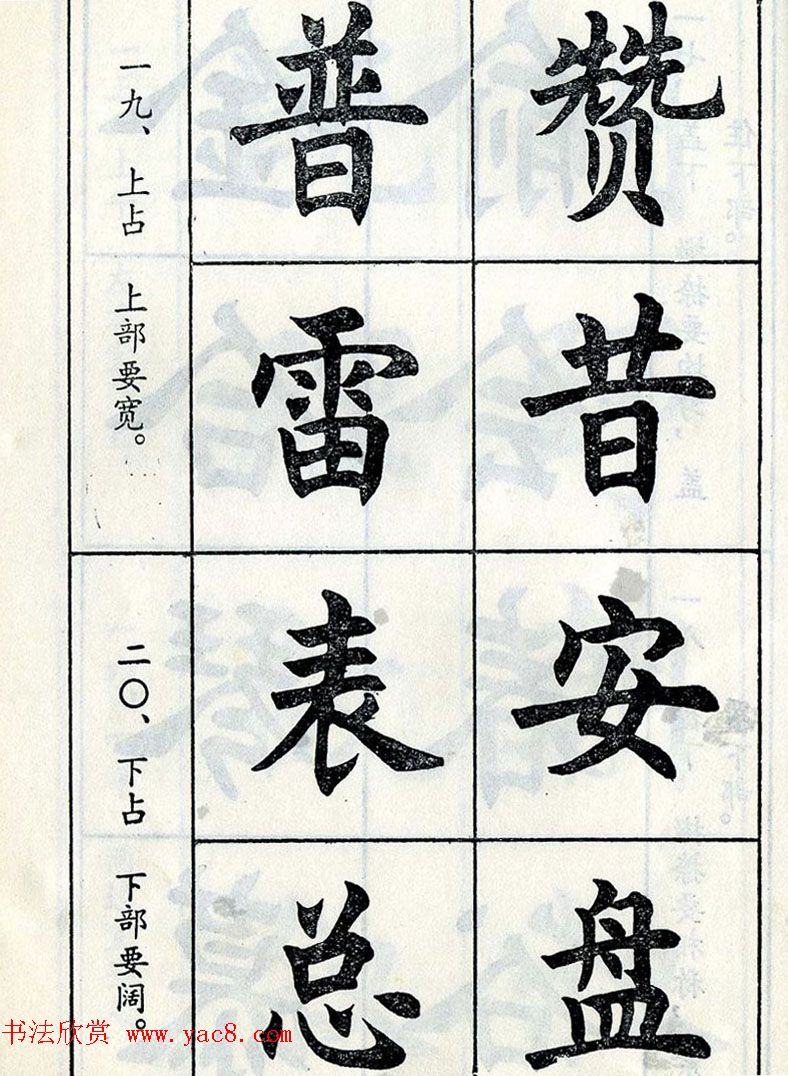 一九、上占 上部要宽。
普 赞
雷 昔
二〇、下占 下部要阔。
表 安
总 盘
书法欣赏 www.yac8.com